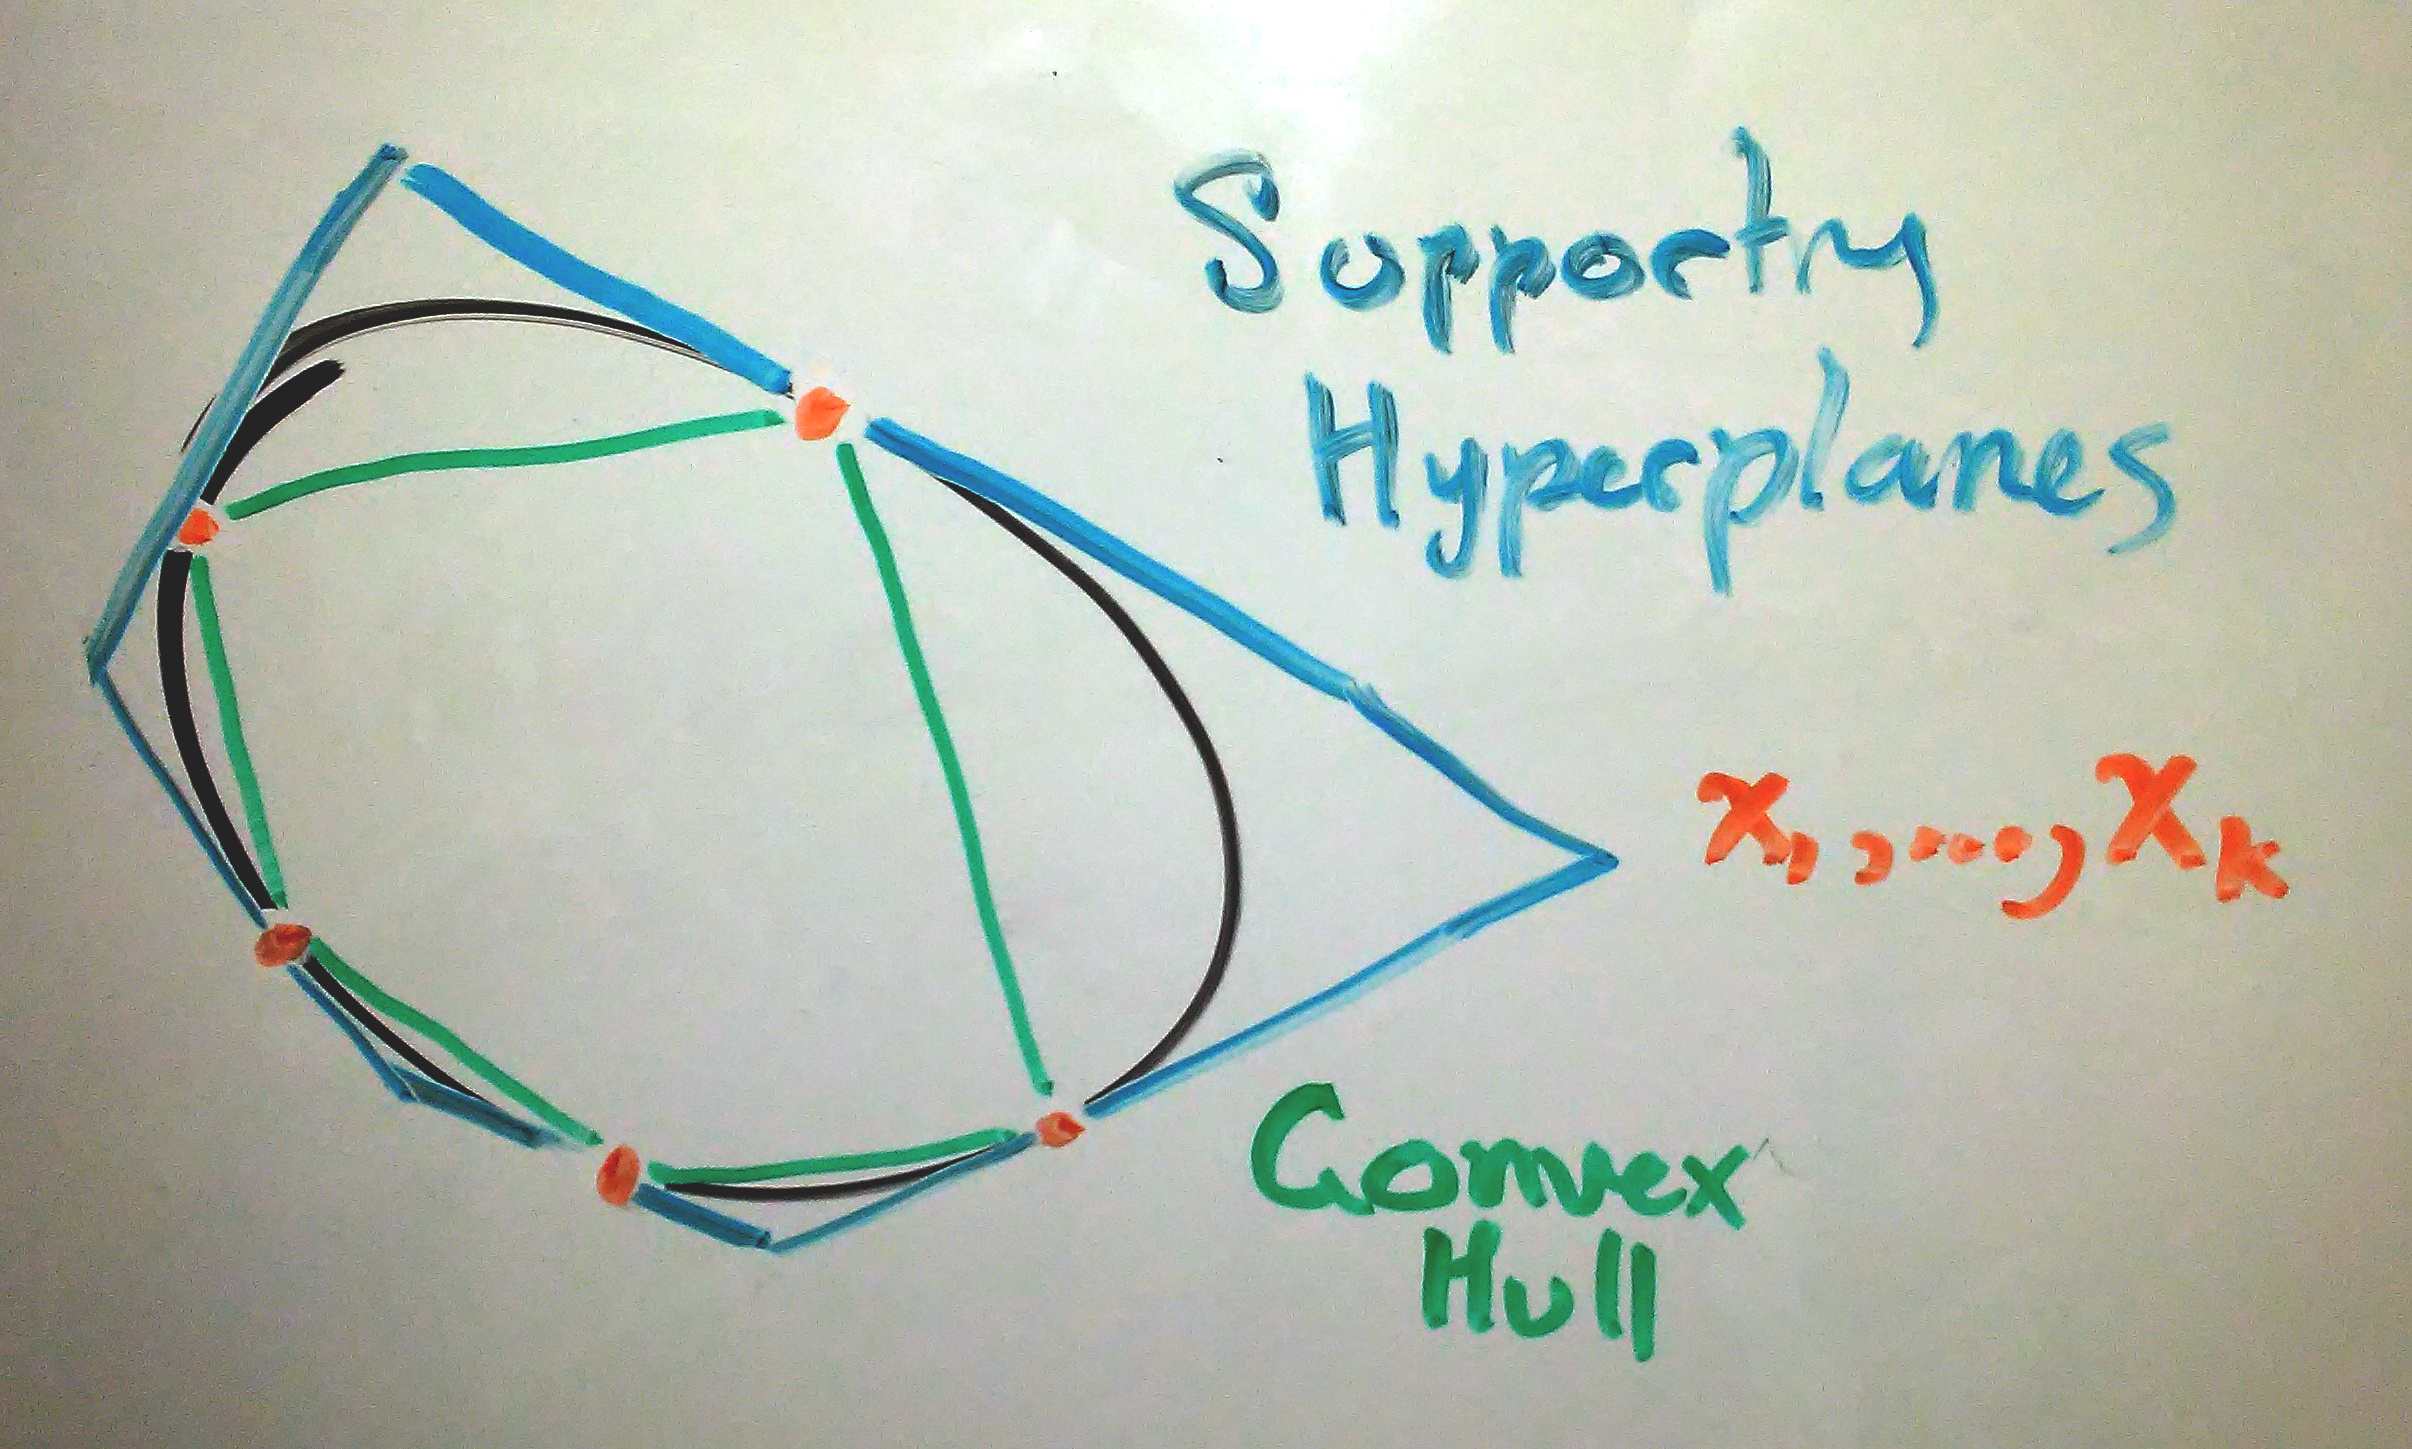 Supportry
Hyperplanes
x₁,...,xₖ
Convex
Hull